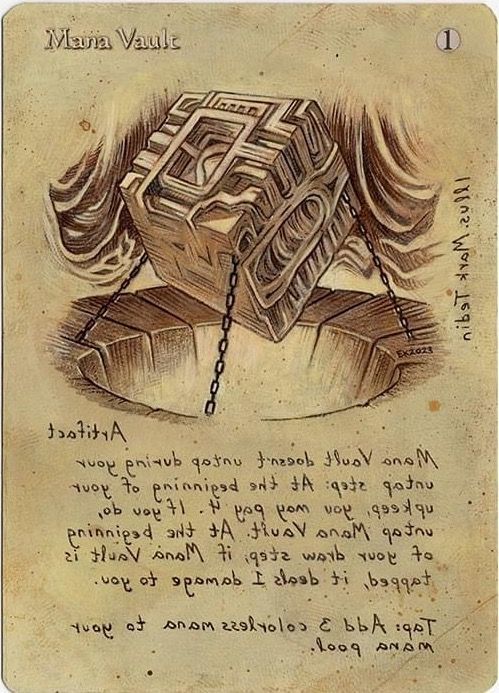 Mana Vault
1
Illus. Mark Tedin
EX2023
Artifact
Mana Vault doesn't untap during your
untap step. At the beginning of your
upkeep, you may pay 4. If you, do,
untap Mana Vault. At the beginning
of your draw step, if Mana Vault is
tapped, it deals 1 damage to you.
Tap: Add 3 colorless mana to your
mana pool.